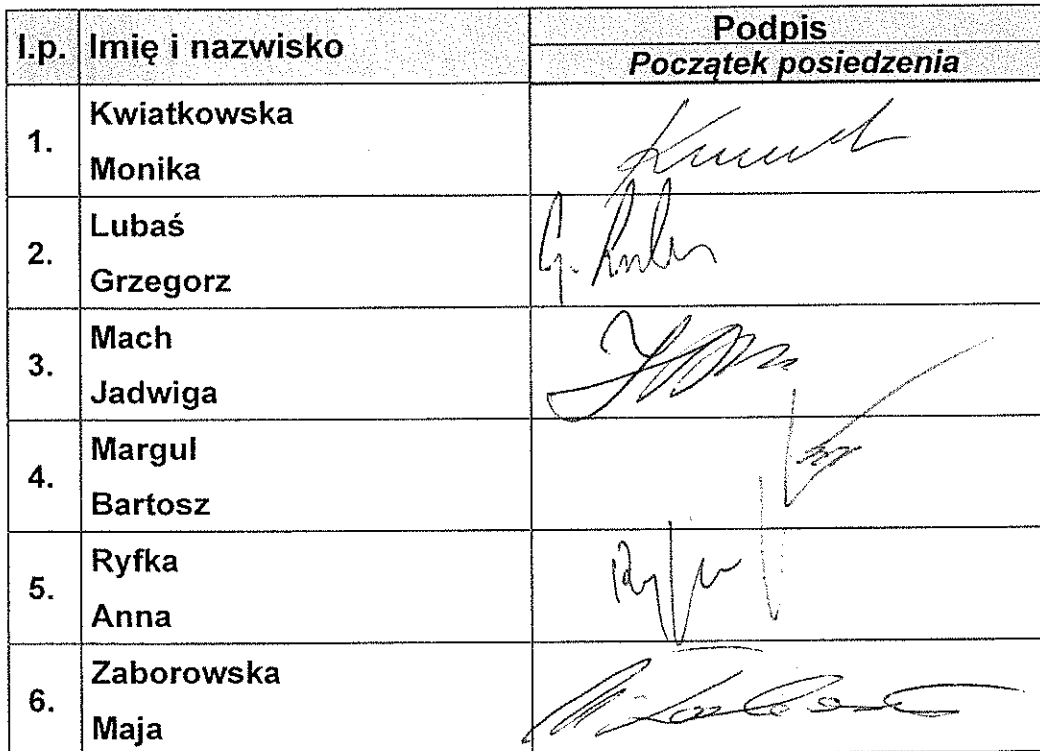 l.p. Imię i nazwisko Podpis
Początek posiedzenia
1. Kwiatkowska
Monika
2. Lubaś
Grzegorz
3. Mach
Jadwiga
4. Margul
Bartosz
5. Ryfka
Anna
6. Zaborowska
Maja